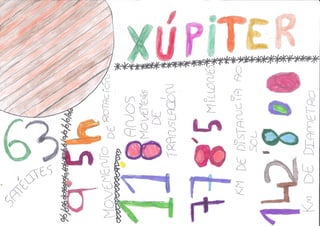 XÚPITER
63
SATÉLITES
9'5h
MOVEMENTO DE ROTACIÓN
11'8 ANOS
MOVEMENTO
DE
TRANSLACIÓN
778'5 MILLONES
KM DE DISTANCIA AO
SOL
142'800
KM DE DIAMETRO